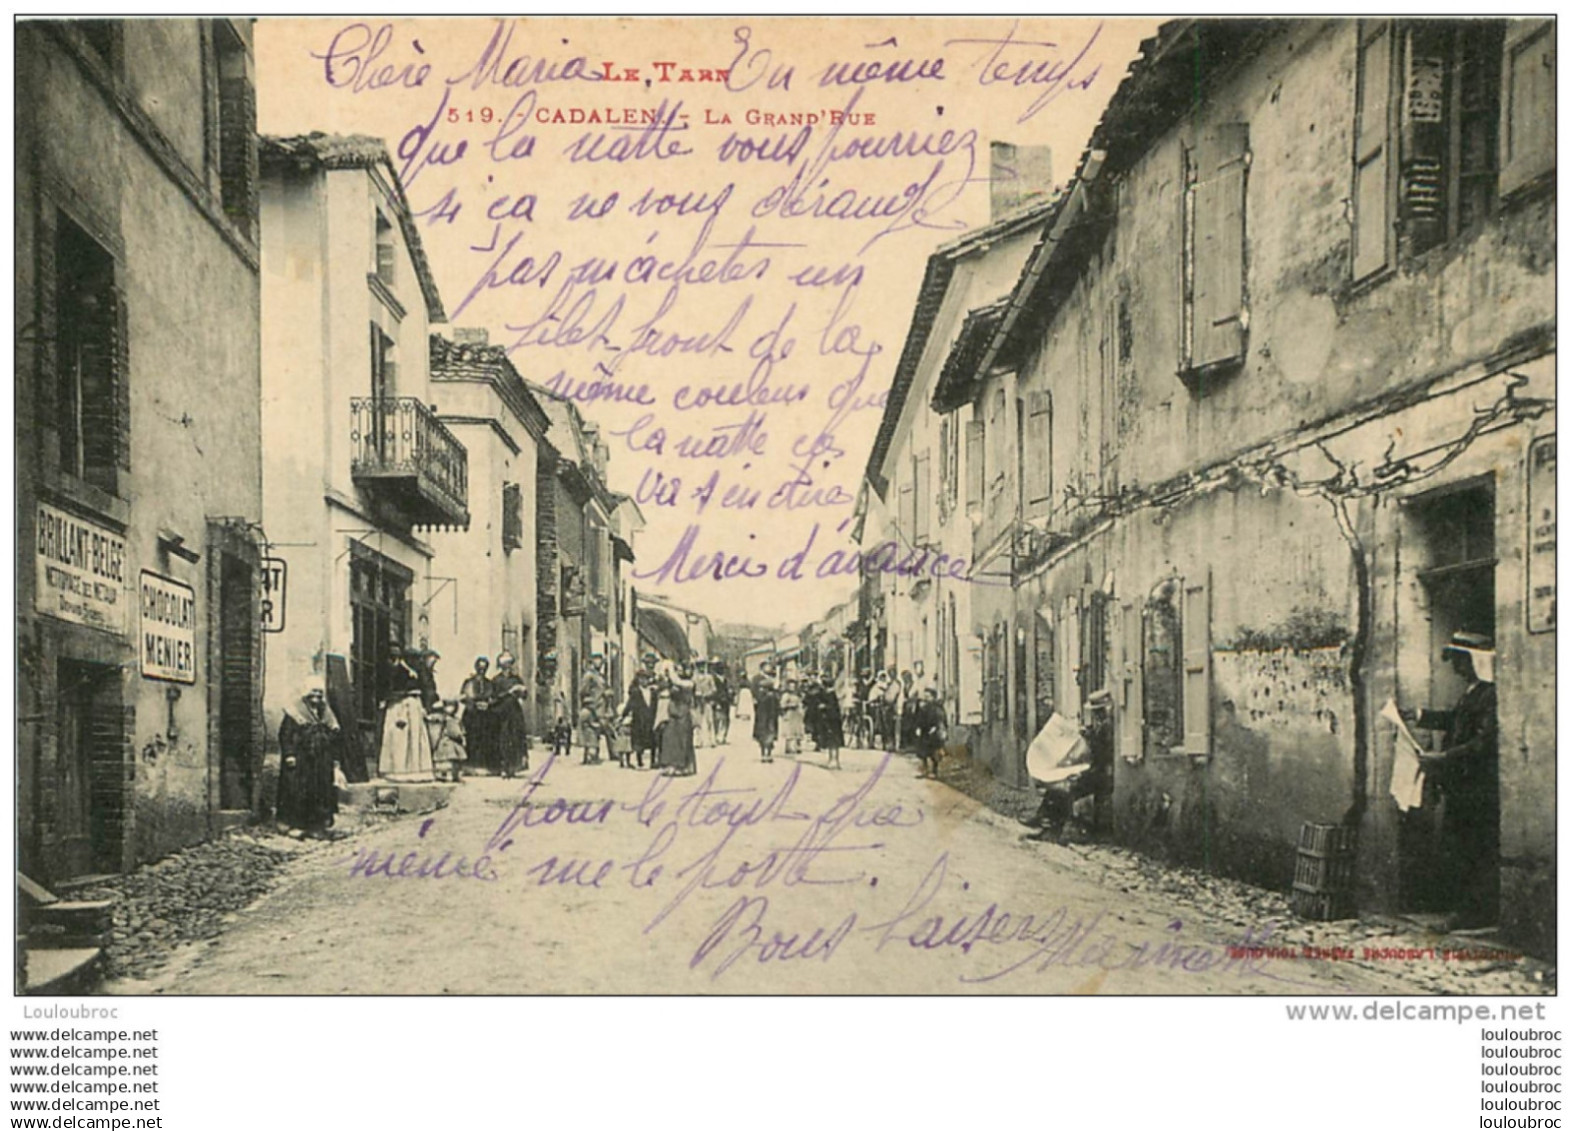 Chère Maria. En même temps
LE TARN
519. - CADALEN. - LA GRAND'RUE
que la natte vous pourriez
si ça ne vous dérange
pas m'acheter un
filet front de la
même couleur que
la natte ça
va s'en dire
Merci d'avance
BRILLANT-BELGE
NETTOYAGE DES METAUX
CHOCOLAT
MENIER
AT
ER
pour le tout que
mémé me le porte.
Bons baisers Marinette
LABOUCHE FRÈRES TOULOUSE
Louloubroc
www.delcampe.net
www.delcampe.net
www.delcampe.net
www.delcampe.net
www.delcampe.net
www.delcampe.net
www.delcampe.net
louloubroc
louloubroc
louloubroc
louloubroc
louloubroc
louloubroc